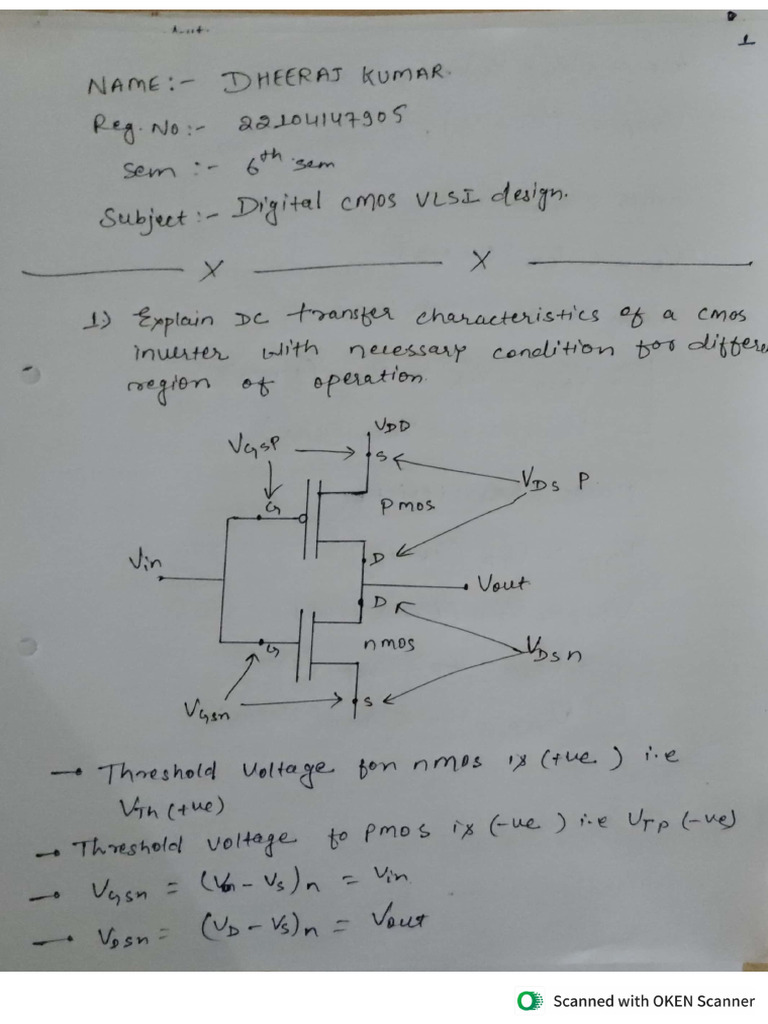 1
NAME:- DHEERAJ KUMAR.
Reg. No:- 22104147905
Sem :- 6th sem
Subject:- Digital CMOS VLSI design.
X X
1) Explain DC transfer characteristics of a CMOS
inverter with necessary condition for differe
region of operation.
VDD
VGSP
S
VDS P
G
PMOS
D
Vin
Vout
D
G
nmos
VDSn
VGSn
S
→ Threshold Voltage for nmos is (+ve) i.e
VTh (+ve)
→ Threshold voltage to PMOS is (-ve) i.e VTP (-ve)
→ VGSn = (VG - VS)n = Vin
→ VDSn = (VD - VS)n = Vout
Scanned with OKEN Scanner